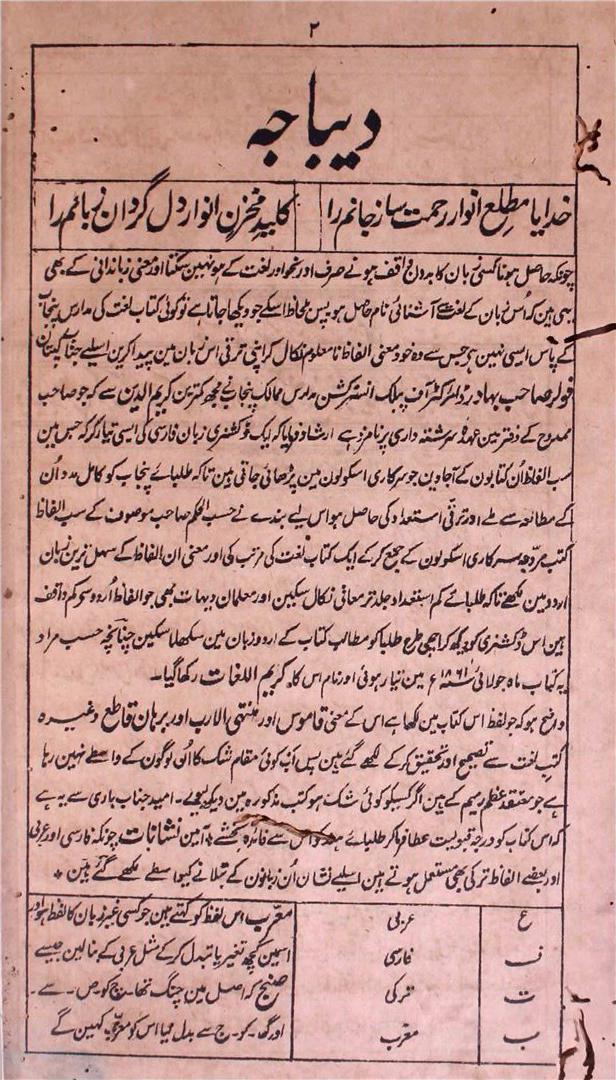 ۲
دیباجہ
خدایا مطلع انوار رحمت ساز جانم را کلید مخزن انوار دل گردان زبانم را
چونکہ حاصل ہونا کسی زبان کا بدون واقف ہونے صرف اور نحو اور لغت کے ہو نہین سکتا اور معنی زباندانی کے بھی
یہی ہین کہ اُس زبان کے لغت سے آشنائی تام حاصل ہو پس بلحاظ اسکے جو دیکھا جاتا ہے تو کوئی کتاب لغت کی مدارس پنجاب
کے پاس ایسی نہین ہے جس سے وہ خود معنی الفاظ نامعلوم نکال کر اپنی ترقی اس زبان مین پیدا کرین اسلیے جناب کپتان
فولر صاحب بہادر ڈائرکٹر آف پبلک انسٹرکشن مدارس ممالک پنجاب نے مجھ کمترین کریم الدین سے کہ جو صاحب
ممدوح کے دفتر مین عہدۂ سرشتہ داری پر نامزد ہے ارشاد فرمایا کہ ایک ڈکشنری زبان فارسی کی ایسی تیار کر کہ جس مین
سب الفاظ اُن کتابون کے آجاوین جو سرکاری اسکولون مین پڑھائی جاتی ہین تاکہ طلباے پنجاب کو کامل مدد اُن
کے مطالعہ سے ملے اور ترقی استعداد کی حاصل ہو اس لیے بندے نے حسب الحکم صاحب موصوف کے سب الفاظ
کتب مروجہ سرکاری اسکولون کے جمع کر کے ایک کتاب لغت کی مرتب کی اور معنی ان الفاظ کے سہل ترین زبان
اردو مین لکھے تاکہ طلباے کم استعداد جلد تر معانی نکال سکین اور معلمان دیہات بھی جو الفاظ اُردو سی کم واقف
ہین اس ڈکشنری کو دیکھ کر اچھی طرح طلبا کو مطالب کتاب کے اردو زبان مین سکھلا سکین چنانچہ حسب مراد
یہ کتاب ماہ جولائی سنہ ۱۸۶۱ع مین تیار ہوئی اور نام اس کا کریم اللغات رکھا گیا۔
واضح ہو کہ جو لفظ اس کتاب مین لکھا ہے اس کے معنی قاموس اور منتہی الارب اور برہان قاطع وغیرہ
کتب لغت سے تصحیح اور تحقیق کر کے لکھے گئے ہین پس اب کوئی مقام شک کا اُن لوگون کے واسطے نہین رہا
ہے جو معتقد عظم رمیم کے ہین اگر کسیکو کوئی شک ہو کتب مذکورہ مین دیکھ لیوے۔ امید جناب باری سے یہ ہے
کہ اس کتاب کو درجہ قبولیت عطا فرماکر طلباے ہند کو اس سے فائدہ بخشے * آمین نشانات چونکہ فارسی اور عربی
اور بعضے الفاظ ترکی بھی مستعمل ہوتے ہین اسلیے نشان اُن زبانون کے بتلانے کیواسطے لکھے گئے ہین *
ع عربی معرب اس لفظ کو کہتے ہین جو کسی غیر زبان کا لفظ ہو اور
ف فارسی اسمین کچھ تغیر یا تبدل کر کے مثل عربی کے بنا لین جیسے
ت ترکی صنج کہ اصل مین چنگ تھا۔ چ کو۔ ص۔ سے۔
ب معرب اور گ۔ کو۔ ج سے بدل لیا اس کو معرب کہین گے